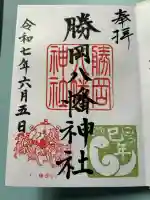 奉拝
勝岡八幡神社
勝岡
神社
令和七年六月五日
巳年